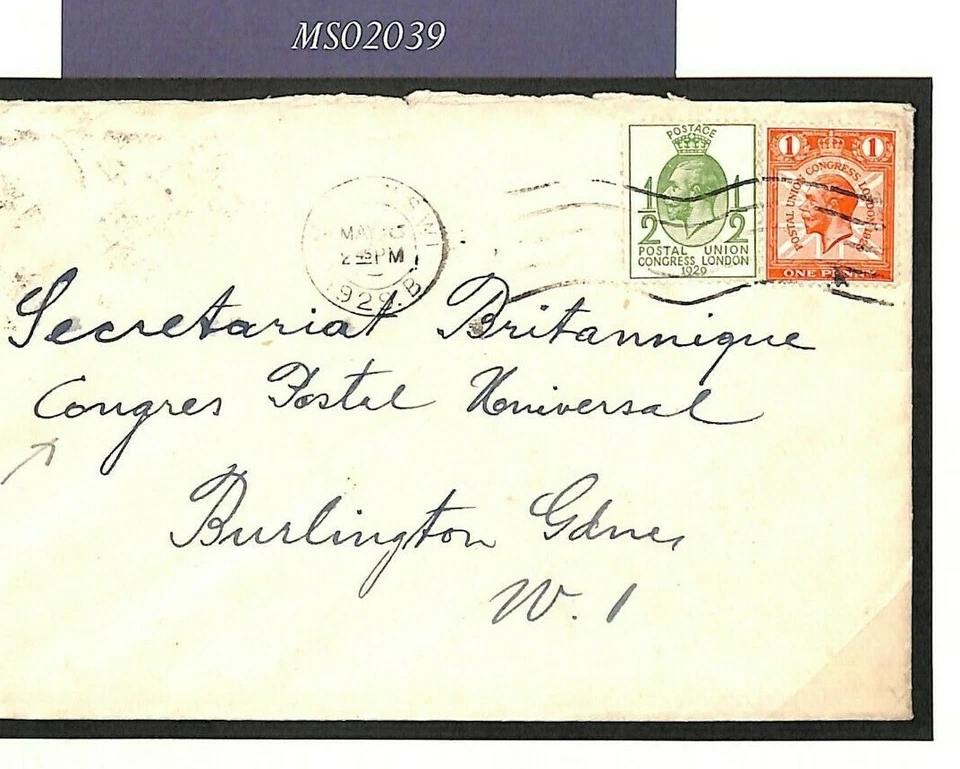 MS02039
POSTAGE
1/2 1/2
POSTAL UNION
CONGRESS LONDON
1929
1 1
POSTAL UNION CONGRESS LONDON 1929
ONE PENNY
MAY
2 45 PM
1929. B
Secretariat Britannique
Congres Postal Universal
Burlington Gdns
W. 1